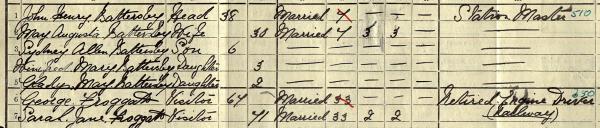 1 John Henry Battersby Head 38 Married 7 Station Master 510
2 May Augusta Battersby Wife 30 Married 7 3 3
3 Sydney Allan Battersby Son 6
4 Winifred Mary Battersby Daughter 3
5 Gladys May Battersby Daughter 2
6 George Froggatt Visitor 67 Married 33 Retired Engine Driver
7 Sarah Jane Froggatt Visitor 71 Married 33 2 2 (Railway)